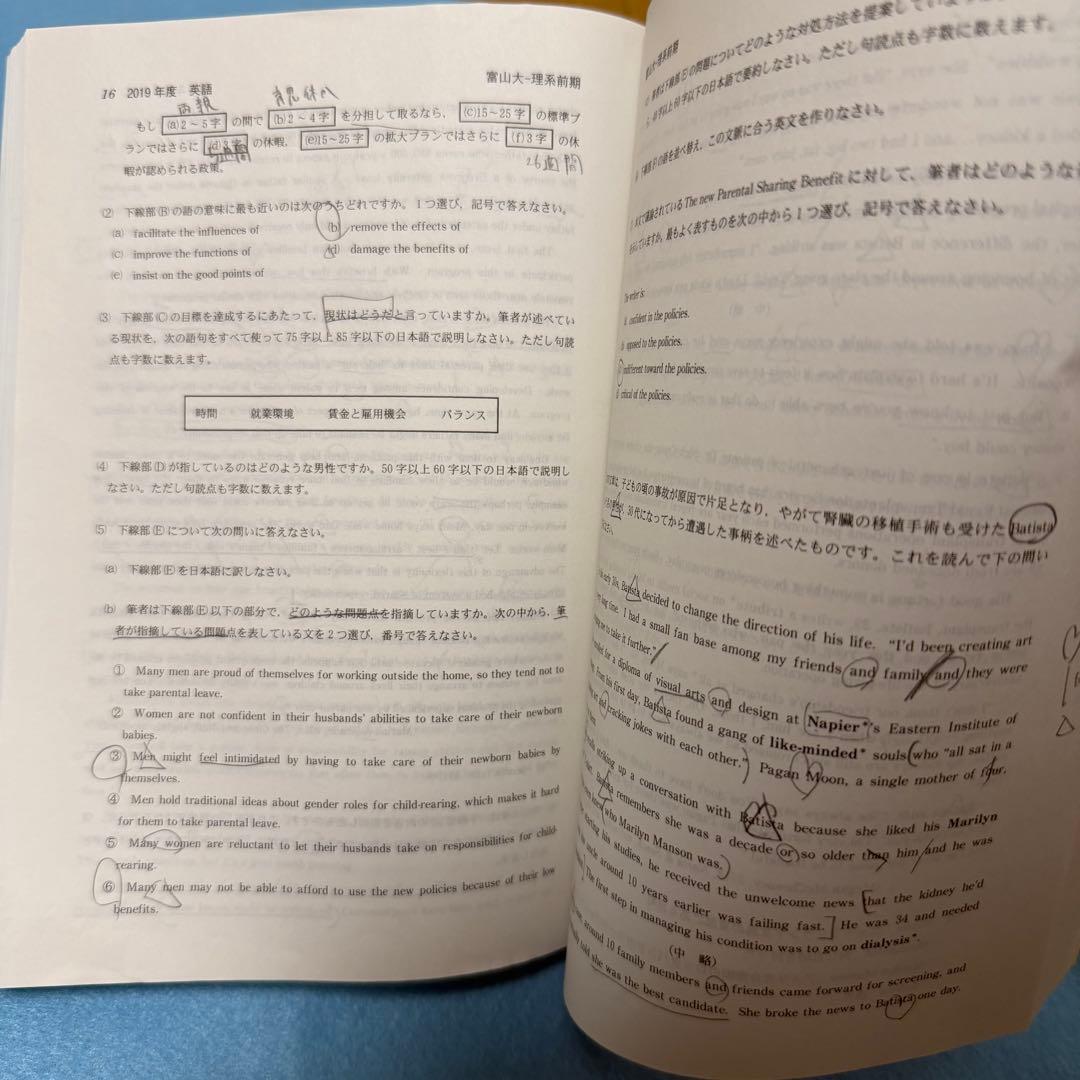 16 2019年度 英語
富山大-理系前期
両親
育児休か
もし (a)2～5字 の間で (b)2～4字 を分担して取るなら，(c)15～25字 の標準プ
ランではさらに (d)3字 の休暇，(e)15～25字 の拡大プランではさらに (f)3字 の休
暇が認められる政策。
週間
26週間
(2) 下線部(B)の語の意味に最も近いのは次のうちどれですか。1つ選び，記号で答えなさい。
(a) facilitate the influences of
(b) remove the effects of
(c) improve the functions of
(d) damage the benefits of
(e) insist on the good points of
(3) 下線部(C)の目標を達成するにあたって，現状はどうだと言っていますか。筆者が述べてい
る現状を，次の語句をすべて使って75字以上85字以下の日本語で説明しなさい。ただし句読
点も字数に数えます。
時間 就業環境 賃金と雇用機会 バランス
(4) 下線部(D)が指しているのはどのような男性ですか。50字以上60字以下の日本語で説明し
なさい。ただし句読点も字数に数えます。
(5) 下線部(E)について次の問いに答えなさい。
(a) 下線部(E)を日本語に訳しなさい。
(b) 筆者は下線部(E)以下の部分で，どのような問題点を指摘していますか。次の中から，筆
者が指摘している問題点を表している文を2つ選び，番号で答えなさい。
① Many men are proud of themselves for working outside the home, so they tend not to
take parental leave.
② Women are not confident in their husbands' abilities to take care of their newborn
babies.
③ Men might feel intimidated by having to take care of their newborn babies by
themselves.
④ Men hold traditional ideas about gender roles for child-rearing, which makes it hard
for them to take parental leave.
⑤ Many women are reluctant to let their husbands take on responsibilities for child-
rearing.
⑥ Many men may not be able to afford to use the new policies because of their low
benefits.
富山大-理系前期
は下線部(E)の問題についてどのような対処方法を提案していま
40字以上60字以下の日本語で要約しなさい。ただし句読点も字数に数えます。
の語を並べ替え，この文脈に合う英文を作りなさい。
で議論されているThe new Parental Sharing Benefitに対して，筆者はどのような
していますか。最もよく表すものを次の中から1つ選び，記号で答えなさい。
The writer is:
confident in the policies.
opposed to the policies.
indifferent toward the policies.
critical of the policies.
は，子どもの頃の事故が原因で片足となり，やがて腎臓の移植手術も受けたBatista
が，30代になってから遭遇した事柄を述べたものです。これを読んで下の問い
early 30s, Batista decided to change the direction of his life. "I'd been creating art
long time. I had a small fan base among my friends and family and they were
me to take it further."
for a diploma of visual arts and design at Napier*'s Eastern Institute of
from his first day, Batista found a gang of like-minded* souls who "all sat in a
art and cracking jokes with each other." Pagan Moon, a single mother of four,
striking up a conversation with Batista because she liked his Marilyn
Batista remembers she was a decade or so older than him and he was
who Marilyn Manson was.
his studies, he received the unwelcome news that the kidney he'd
around 10 years earlier was failing fast. He was 34 and needed
The first step in managing his condition was to go on dialysis*.
(中 略)
around 10 family members and friends came forward for screening, and
told she was the best candidate. She broke the news to Batista one day.